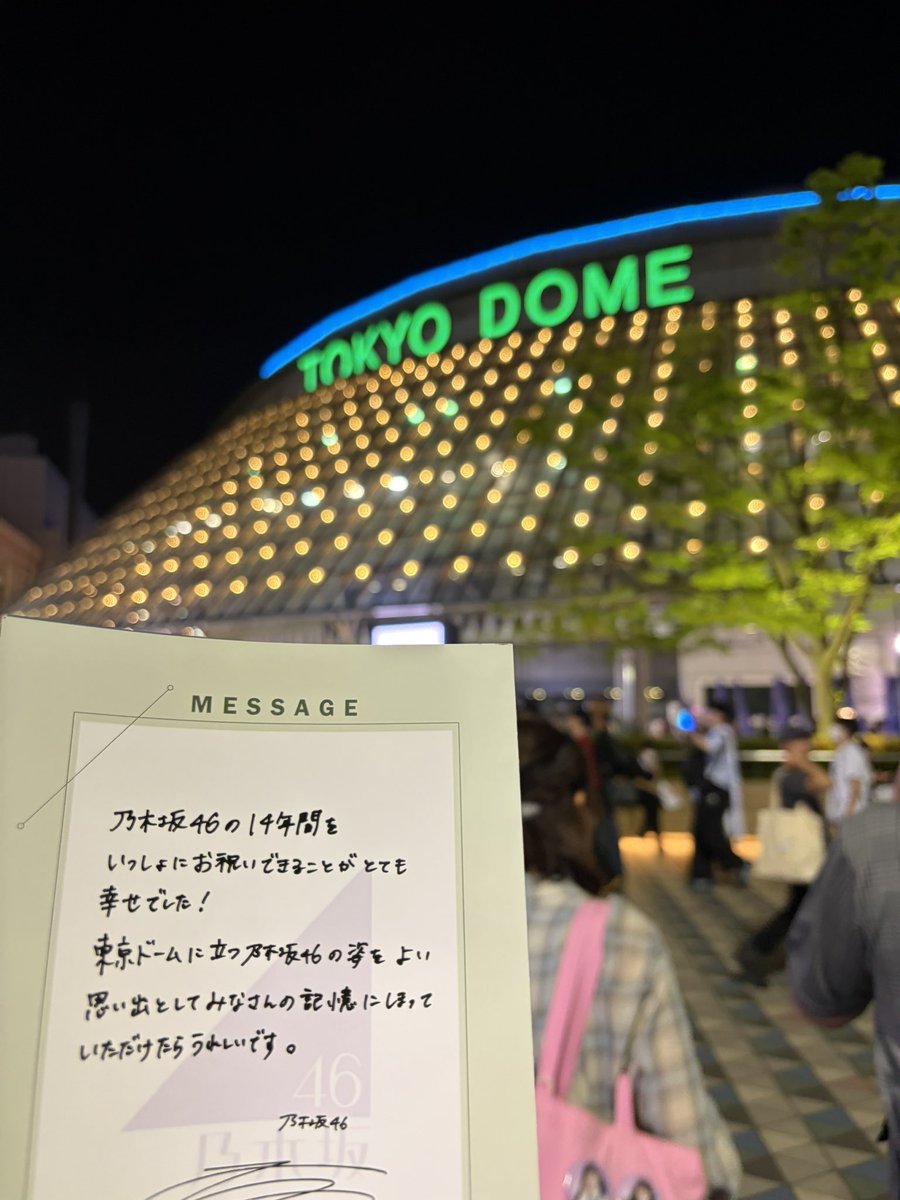 TOKYO DOME
MESSAGE
乃木坂46の14年間を
いっしょにお祝いできることがとても
幸せでした!
東京ドームに立つ乃木坂46の姿をよい
思い出としてみなさんの記憶にしまって
いただけたらうれしいです。
46
乃木坂46
乃木坂